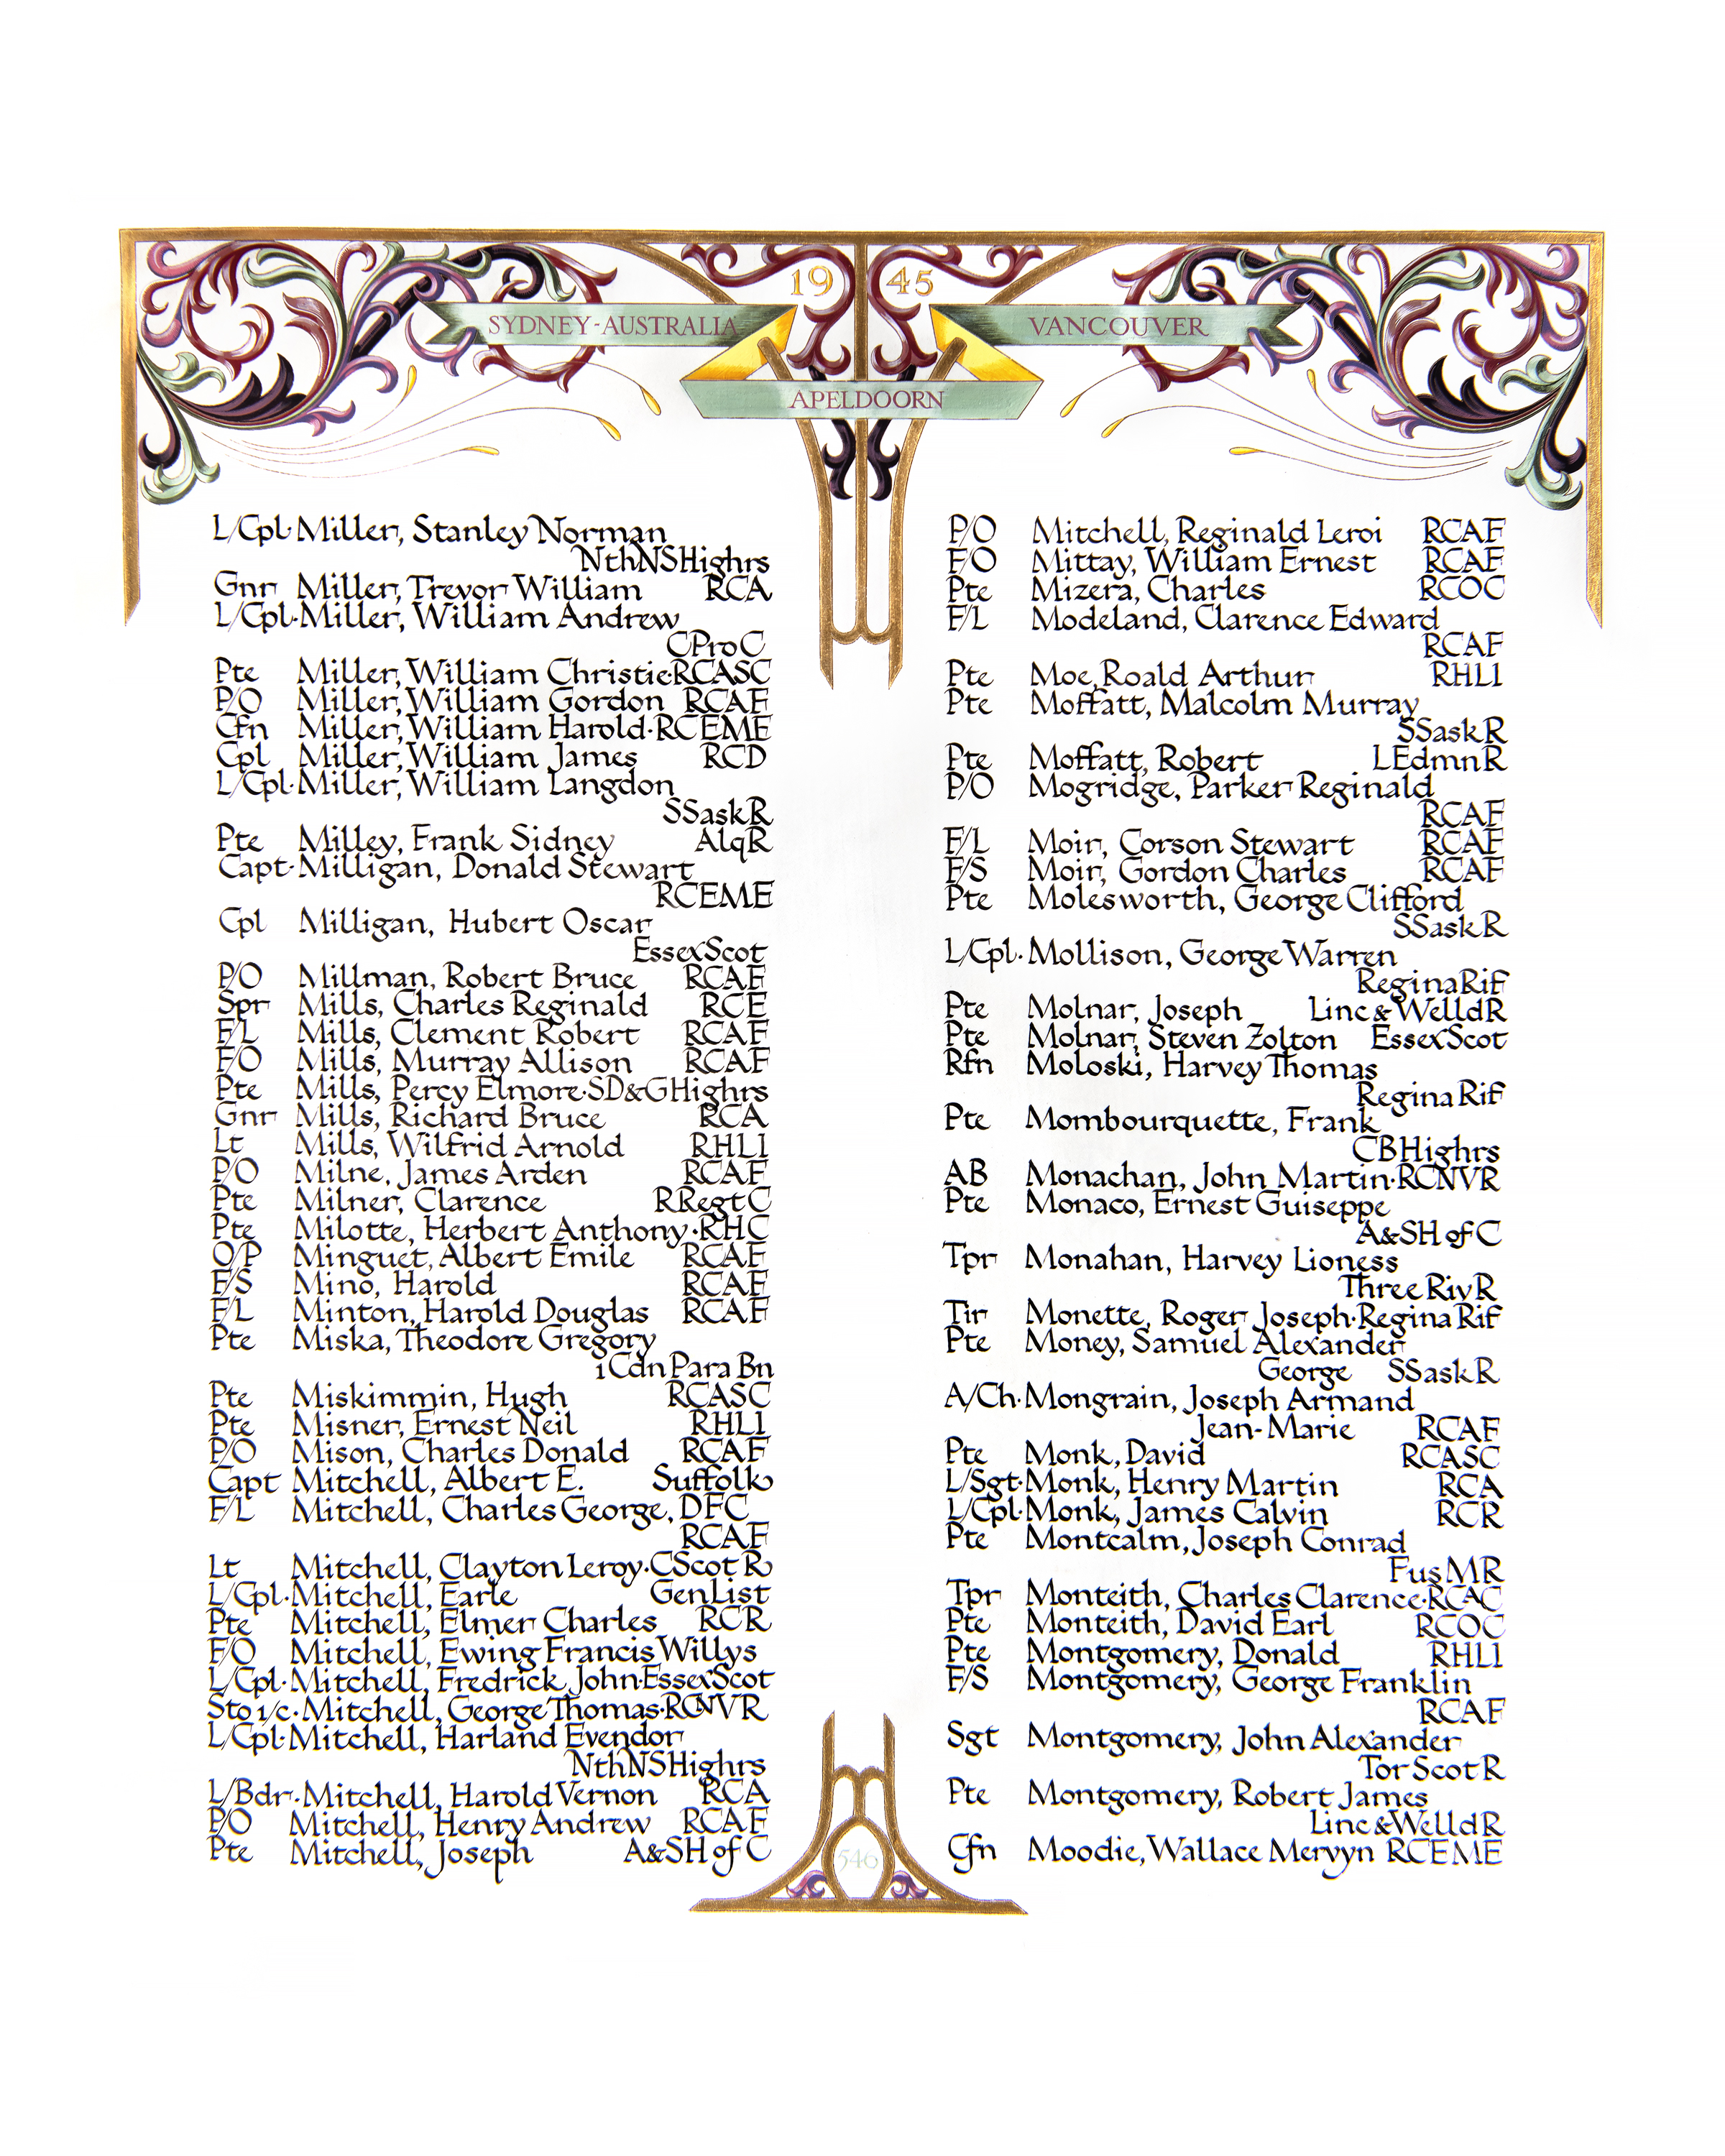 19 45
SYDNEY-AUSTRALIA
VANCOUVER
APELDOORN
L/Cpl·Miller, Stanley Norman
NthNSHighrs
Gnr Miller, Trevor William RCA
L/Cpl·Miller, William Andrew
CProC
Pte Miller, William Christie·RCASC
P/O Miller, William Gordon RCAF
Cfn Miller, William Harold·RCEME
Cpl Miller, William James RCD
L/Cpl·Miller, William Langdon
SSaskR
Pte Milley, Frank Sidney AlqR
Capt·Milligan, Donald Stewart
RCEME
Cpl Milligan, Hubert Oscar
EssexScot
P/O Millman, Robert Bruce RCAF
Spr Mills, Charles Reginald RCE
F/L Mills, Clement Robert RCAF
F/O Mills, Murray Allison RCAF
Pte Mills, Percy Elmore·SD&GHighrs
Gnr Mills, Richard Bruce RCA
Lt Mills, Wilfrid Arnold RHLI
P/O Milne, James Arden RCAF
Pte Milner, Clarence RRegtC
Pte Milotte, Herbert Anthony·RHC
O/P Minguet, Albert Emile RCAF
F/S Mino, Harold RCAF
F/L Minton, Harold Douglas RCAF
Pte Miska, Theodore Gregory
1 Cdn Para Bn
Pte Miskimmin, Hugh RCASC
Pte Misner, Ernest Neil RHLI
P/O Mison, Charles Donald RCAF
Capt Mitchell, Albert E. Suffolk
F/L Mitchell, Charles George, DFC
RCAF
Lt Mitchell, Clayton Leroy·CScot R
L/Cpl·Mitchell, Earle GenList
Pte Mitchell, Elmer Charles RCR
F/O Mitchell, Ewing Francis Willys
L/Cpl·Mitchell, Fredrick John·EssexScot
Sto 1/c·Mitchell, George Thomas·RCNVR
L/Cpl·Mitchell, Harland Evendor
NthNSHighrs
L/Bdr·Mitchell, Harold Vernon RCA
P/O Mitchell, Henry Andrew RCAF
Pte Mitchell, Joseph A&SH of C
P/O Mitchell, Reginald Leroi RCAF
F/O Mittay, William Ernest RCAF
Pte Mizera, Charles RCOC
F/L Modeland, Clarence Edward
RCAF
Pte Moe, Roald Arthur RHLI
Pte Moffatt, Malcolm Murray
SSaskR
Pte Moffatt, Robert LEdmnR
P/O Mogridge, Parker Reginald
RCAF
F/L Moir, Corson Stewart RCAF
F/S Moir, Gordon Charles RCAF
Pte Molesworth, George Clifford
SSaskR
L/Cpl·Mollison, George Warren
ReginaRif
Pte Molnar, Joseph Linc&WelldR
Pte Molnar, Steven Zolton EssexScot
Rfn Moloski, Harvey Thomas
Regina Rif
Pte Mombourquette, Frank
CBHighrs
AB Monachan, John Martin·RCNVR
Pte Monaco, Ernest Guiseppe
A&SH of C
Tpr Monahan, Harvey Lioness
Three RivR
Tir Monette, Roger Joseph·Regina Rif
Pte Money, Samuel Alexander
George SSaskR
A/Ch·Mongrain, Joseph Armand
Jean-Marie RCAF
Pte Monk, David RCASC
L/Sgt·Monk, Henry Martin RCA
L/Cpl·Monk, James Calvin RCR
Pte Montcalm, Joseph Conrad
Fus MR
Tpr Monteith, Charles Clarence·RCAC
Pte Monteith, David Earl RCOC
Pte Montgomery, Donald RHLI
F/S Montgomery, George Franklin
RCAF
Sgt Montgomery, John Alexander
Tor Scot R
Pte Montgomery, Robert James
Linc&WelldR
Cfn Moodie, Wallace Mervyn RCEME
546